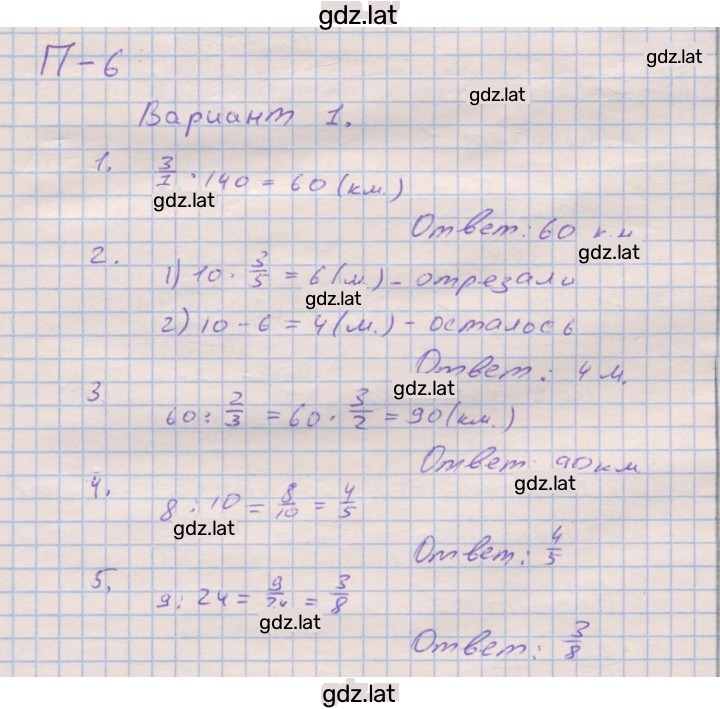 gdz.lat
П-6
gdz.lat
gdz.lat
Вариант 1.
1. 3/7 · 140 = 60 (км.)
gdz.lat
Ответ: 60 км
gdz.lat
2. 1) 10 · 3/5 = 6 (м.) - отрезали
gdz.lat
2) 10 - 6 = 4 (м.) - осталось
Ответ: 4 м.
gdz.lat
3 60 : 2/3 = 60 · 3/2 = 90 (км.)
Ответ: 90 км
gdz.lat
4. 8 : 10 = 8/10 = 4/5
gdz.lat
Ответ: 4/5
5. 9 : 24 = 9/24 = 3/8
gdz.lat
Ответ: 3/8
gdz.lat